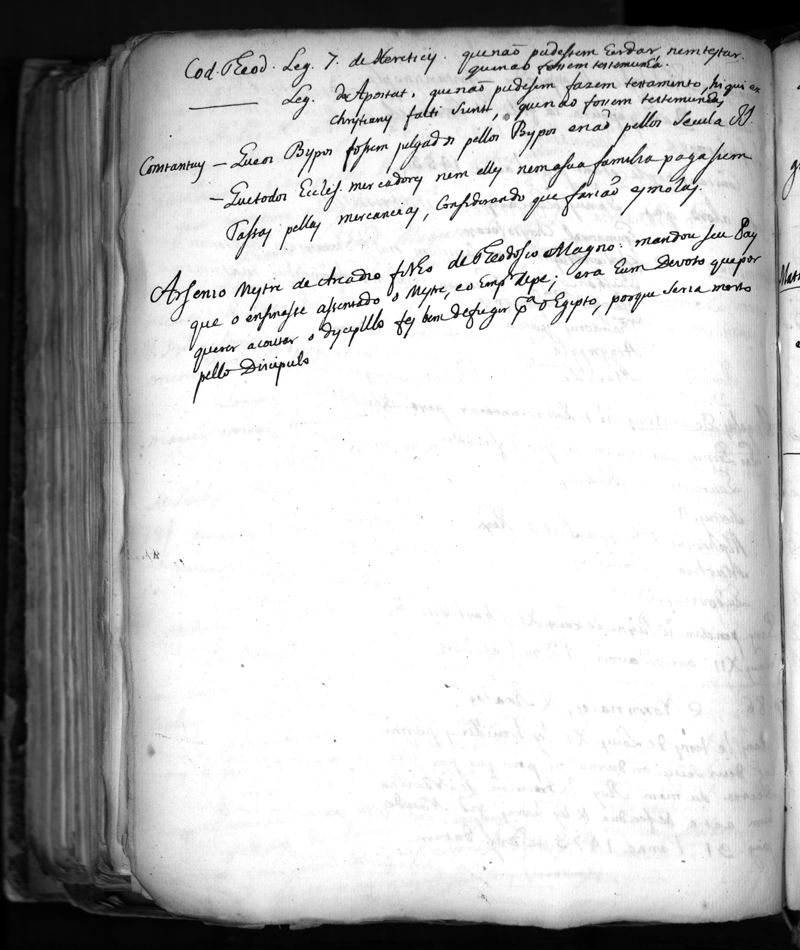 Cod. Theod. Leg. 7. de Hereticis. que não pudessem Erdar, nem testar.
que não fossem testemunha.
Leg. de Apostat. que não pudesem fazem testamento, hi qui ex
christianis facti sunt, que não fossem testemunhas
Constantius — Que os Bispos fossem julgados pellos Bispos e não pellos secula
— Que todos Eccles. mercadores nem elles nem a sua familia pagassem
Tassas pellas mercancias, Considerando que farião esmolas.
Arsenio Mestre de Arcadio filho de Theodosio o Magno: mandou seu Pay
que o ensinasse assentado o Mestre, e o Emp.or de pe; era hum Devoto que por
querer acoutar o dycipllo fes bem de fugir p.a o Egipto, porque seria morto
pello Discipulo